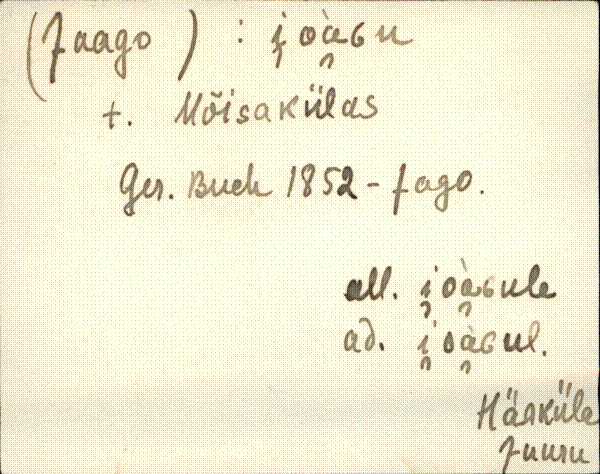 (Jaago) : i̯oàɢu
t. Mõisakülas
Ger. Buch 1852 - Jago.
all. i̯oàɢule
ad. i̯oàɢul.
Härküla
Juuru